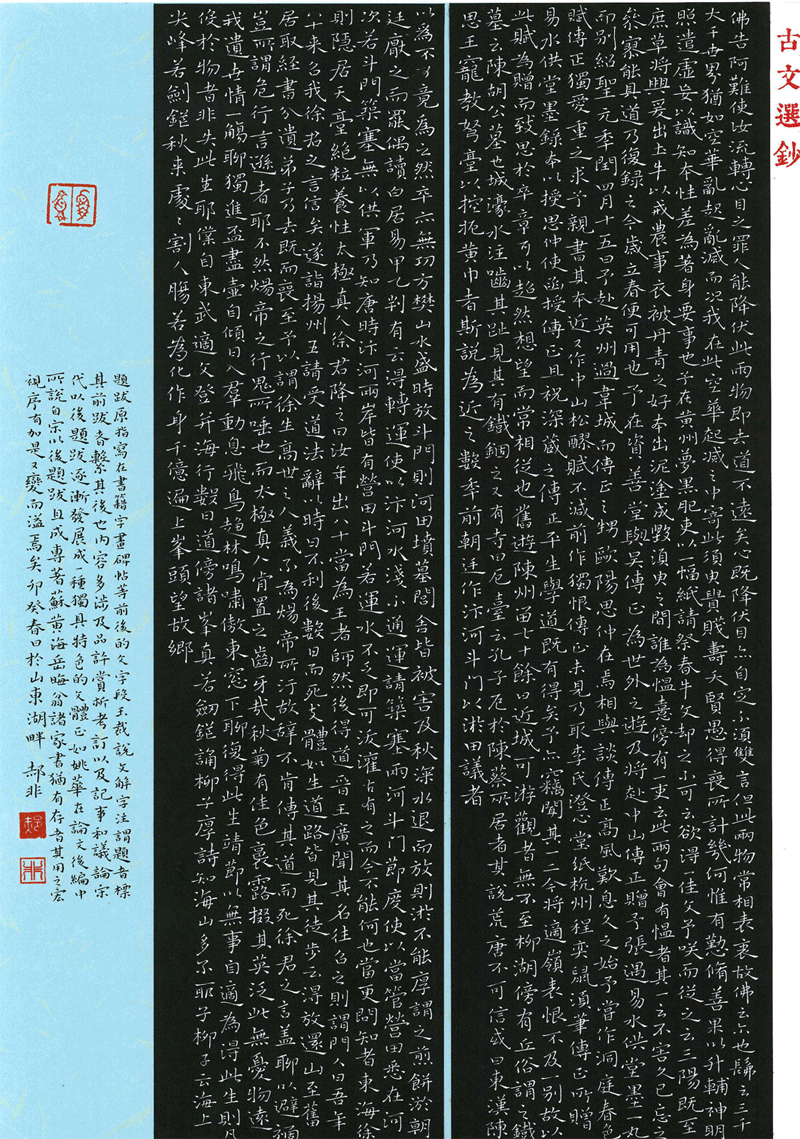 古文選鈔
佛告阿難使汝流轉心目之罪人能降伏此兩物即去道不遠矣心既降伏目亦自定不須雙言但此兩物常相表裏故佛云尔也 云三千
大千世界猶如空華亂起亂滅而況我在此空華起滅之中寄此須臾貴賤壽夭賢愚得喪所計幾何惟有勤脩善果以升輔神明
照遣虛妄以識知本性差為著身要事也予在黃州夢黑肥吏以一幅紙請祭春牛文却之不可云欲得一佳文予咲而從之云三陽既至
庶草將興爰出土牛以戒農事衣被丹青之好本出泥塗成毀須臾之間誰為愠憙傍有一吏云此兩句會有愠者其一云不害久已忘之
參寥能具道乃復録之今歲立春便可用也予在資善堂與吳傳正為世外之遊及將赴中山傳正贈予張遇易水供堂墨一丸
而別紹聖元年閏四月十五日予赴英州過韋城而傳正之甥歐陽思仲在焉相與談傳正高風歎息久之始予嘗作洞庭春色
賦傳正獨愛重之求予親書其本近又作中山松醪賦不減前作獨恨傳正未見乃取李氏澄心堂紙杭州程奕鼠須筆傳正所贈
易水供堂墨錄本以授思仲使面授傳正且祝深藏之傳正平生學道既有得矣予亦竊聞其一二今將適嶺表恨不及別故以
此賦為贈而致思於卒章可以超然想望而常相從也舊遊陳州留七十餘日近城可游觀者無不至柳湖傍有丘俗謂之鐵
墓云陳胡公墓也城濠水注嚙其趾見其有鐵錮之又有寺曰厄臺云孔子厄於陳蔡所居者其說荒唐不可信或曰東漢陳
思王寵教弩臺以控扼黃巾者斯說為近之數年前朝廷作汴河斗門以淤田識者
以為不可竟為之然卒亦無功方樊山水盛時放斗門則河田墳墓閭舍皆被害及秋深水退而放則淤不能厚謂之煎餅淤朝
廷厭之而罷偶讀白居易甲乙判有云得轉運使以汴河水淺不通運請築塞兩河斗門節度使以當管營田悉在河
次若斗門築塞無以供軍乃知唐時汴河兩岸皆有營田斗門若運水不乏即可沃灌古有之而今不能何也當更問知者東海徐
則隱居天臺絕粒養性太極真人徐君降之曰汝年出八十當為王者師然後得道晉王廣聞其名往召之則謂門人曰吾年
八十來召我徐君之言信矣遂詣揚州王請受道法辭以時日不利後數日而死支體如生道路皆見其徒步云得放還山至舊
居取經書分遺弟子乃去既而喪至予以謂徐生高世之人義不為煬帝所汙故辭不肯傳其道而死徐君之言蓋聊以避禍
豈所謂危行言遜者耶不然煬帝之行鬼所唾也而太極真人肯置之齒牙哉秋菊有佳色裛露掇其英泛此無憂物遠
我遺世情一觴聊獨進盃盡壺自傾日入羣動息飛鳥趨林鳴嘯傲東窓下聊復得此生靖節以無事自適為得此生則凡
役於物者非失此生耶僕自東武適文登并海行數日道傍諸峯真若劒鋩誦柳子厚詩知海山多尓耶子柳子云海上
尖峰若劍鋩秋來處處割人腸若為化作身千億遍上峯頭望故鄉
題跋原指寫在書籍字畫碑帖等前後的文字段玉裁說文解字注謂題者標
其前跋者繫其後也內容多涉及品評賞析考訂以及記事和議論宋
代以後題跋逐漸發展成一種獨具特色的文體正如姚華在論文後編中
所說自宋以後題跋且成專著蘇黃海岳晦翁諸家書猶有存者其用之宏
視序有加是又變而溢焉矣卯癸春日於山東湖畔 郝非